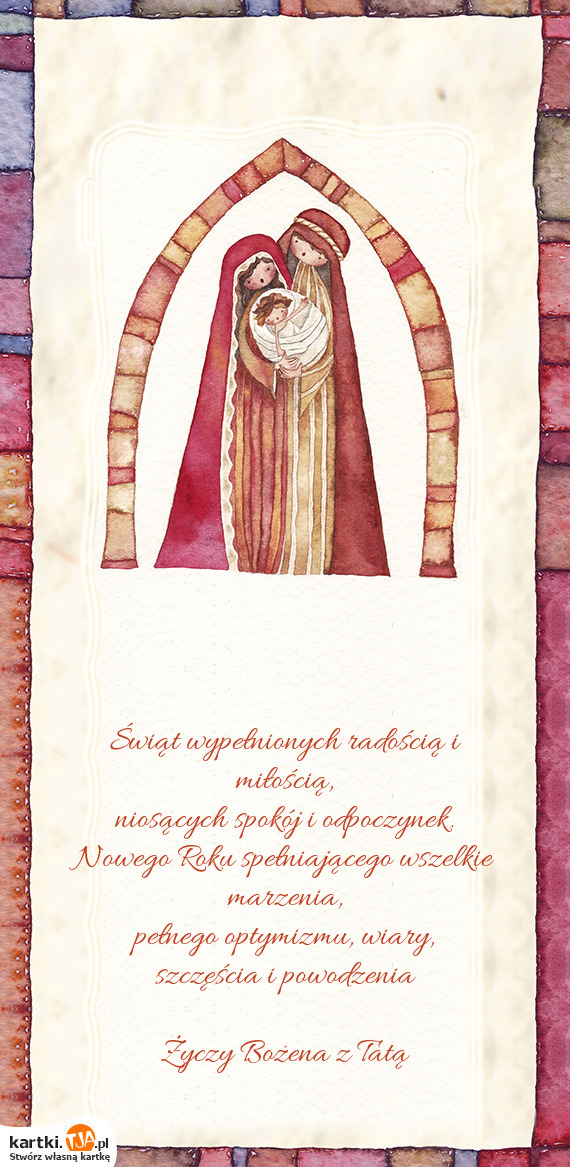 Świąt wypełnionych radością i
miłością,
niosących spokój i odpoczynek.
Nowego Roku spełniającego wszelkie
marzenia,
pełnego optymizmu, wiary,
szczęścia i powodzenia
Życzy Bożena z Tatą
kartki.TJA.pl
Stwórz własną kartkę